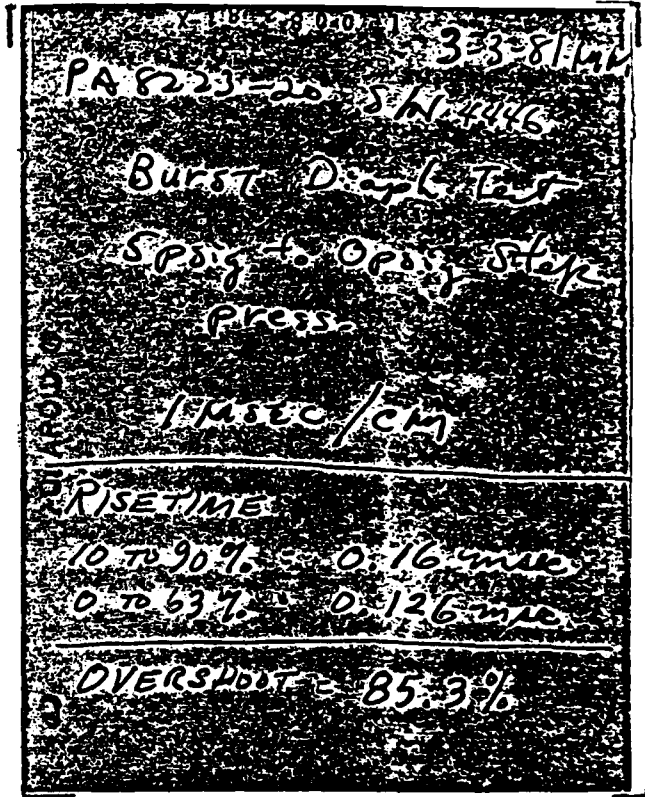 3-3-81
PA 8223-20 S/N 4446
Burst Diaph Test
5psig to 0psig step
press.
1 msec/cm
RISETIME
10 TO 90% = 0.16 msec
0 TO 63% = 0.126 msec
OVERSHOOT = 85.3%